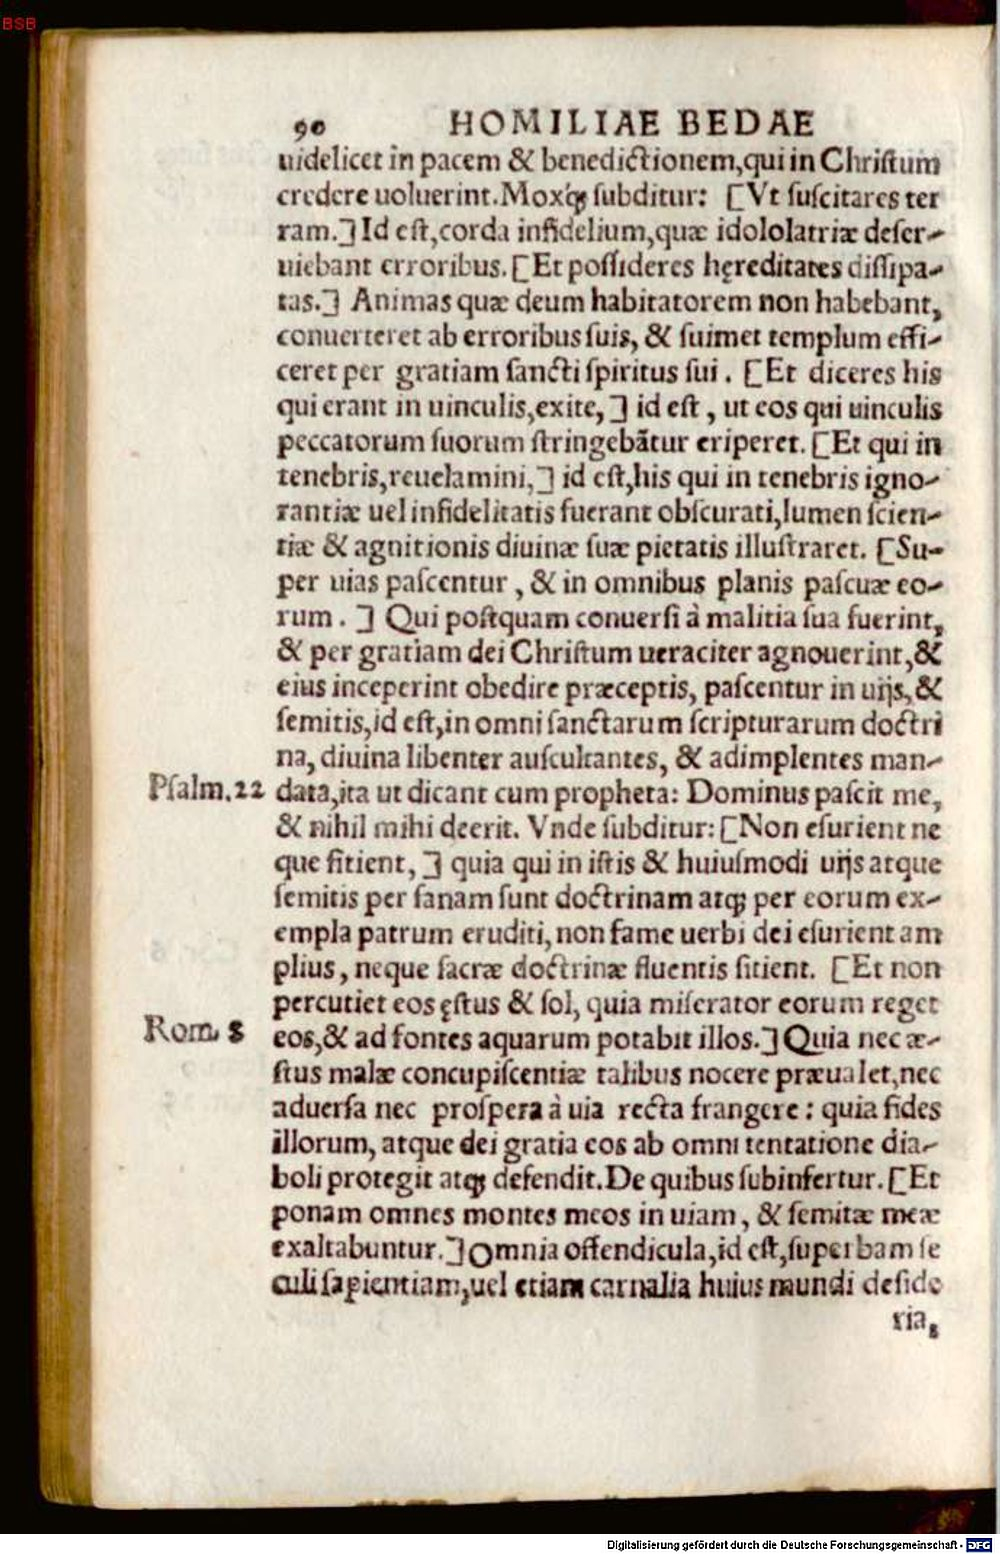 BSB
90 HOMILIAE BEDAE
uidelicet in pacem & benedictionem, qui in Chriſtum
credere uoluerint. Moxq́ꝫ ſubditur: [Vt ſuſcitares ter
ram.] Id eſt, corda infidelium, quæ idololatriæ deſer-
uiebant erroribus. [Et poſſideres hęreditates diſſipa-
tas.] Animas quæ deum habitatorem non habebant,
conuerteret ab erroribus ſuis, & ſuimet templum effi-
ceret per gratiam ſancti ſpiritus ſui. [Et diceres his
qui erant in uinculis, exite,] id eſt, ut eos qui uinculis
peccatorum ſuorum ſtringebātur eriperet. [Et qui in
tenebris, reuelamini,] id eſt, his qui in tenebris igno-
rantiæ uel infidelitatis fuerant obſcurati, lumen ſcien-
tiæ & agnitionis diuinæ ſuæ pietatis illuſtraret. [Su-
per uias paſcentur, & in omnibus planis paſcuæ eo-
rum.] Qui poſtquam conuerſi à malitia ſua fuerint,
& per gratiam dei Chriſtum ueraciter agnouerint, &
eius inceperint obedire præceptis, paſcentur in uijs, &
ſemitis, id eſt, in omni ſanctarum ſcripturarum doctri
na, diuina libenter auſcultantes, & adimplentes man-
Pſalm. 22 data, ita ut dicant cum propheta: Dominus paſcit me,
& nihil mihi deerit. Vnde ſubditur: [Non eſurient ne
que ſitient,] quia qui in iſtis & huiuſmodi uijs atque
ſemitis per ſanam ſunt doctrinam atqꝫ per eorum ex-
empla patrum eruditi, non fame uerbi dei eſurient am
plius, neque ſacræ doctrinæ fluentis ſitient. [Et non
percutiet eos ęſtus & ſol, quia miſerator eorum reget
Rom. 8 eos, & ad fontes aquarum potabit illos.] Quia nec æ-
ſtus malæ concupiſcentiæ talibus nocere præualet, nec
aduerſa nec proſpera à uia recta frangere: quia fides
illorum, atque dei gratia eos ab omni tentatione dia-
boli protegit atqꝫ defendit. De quibus ſubinfertur. [Et
ponam omnes montes meos in uiam, & ſemitæ meæ
exaltabuntur.] Omnia offendicula, id eſt, ſuperbam ſe
culi ſapientiam, uel etiam carnalia huius mundi deſide
ria,
Digitalisierung gefördert durch die Deutsche Forschungsgemeinschaft - DFG